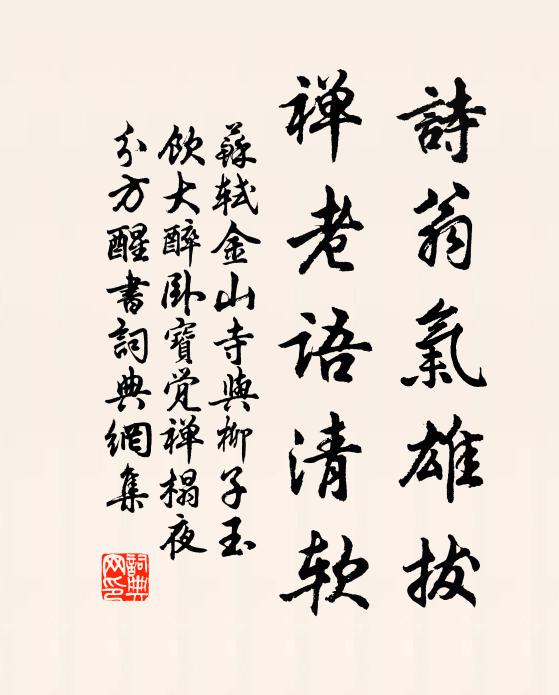 詩翁氣雄拔
禅老语清软
蘇轼金山寺與柳子玉
飲大醉卧寶覚禅榻夜
分方醒書詞典網集
詞典网印